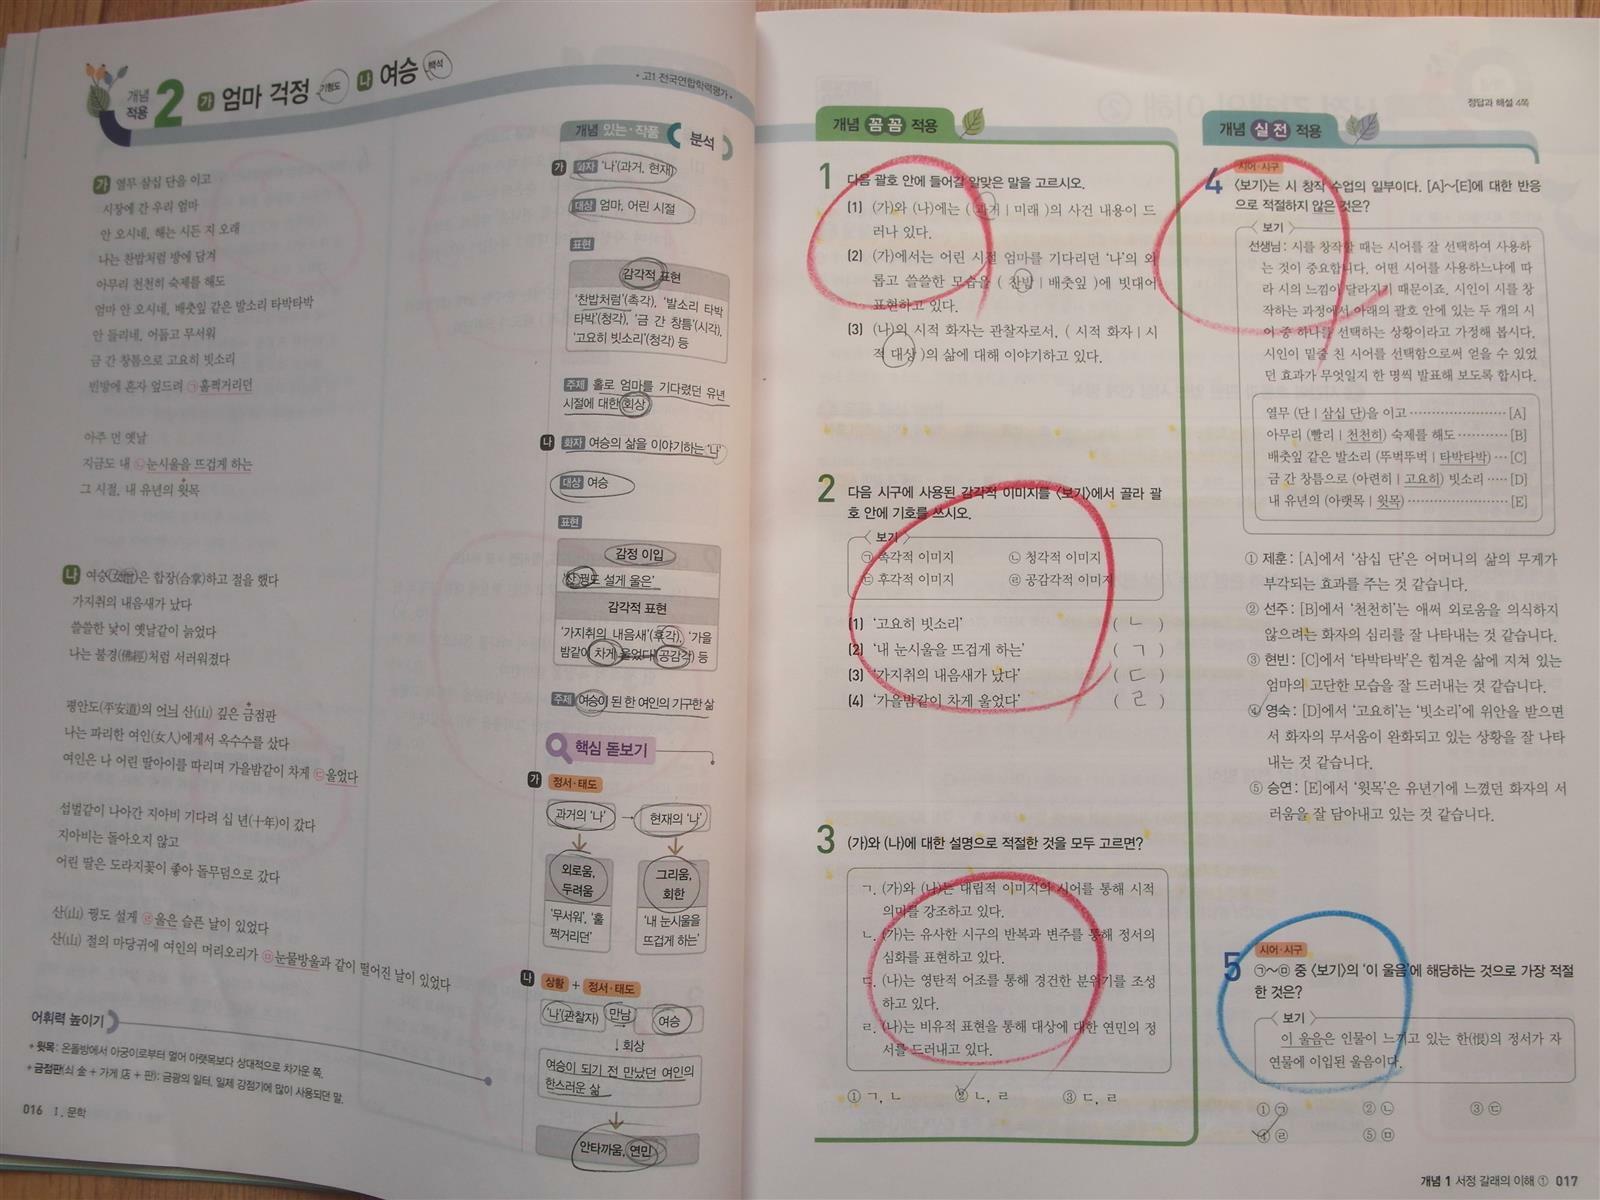 개념 적용 2 가 엄마 걱정 기형도 나 여승 백석
• 고1 전국연합학력평가 •
가 열무 삼십 단을 이고
시장에 간 우리 엄마
안 오시네, 해는 시든 지 오래
나는 찬밥처럼 방에 담겨
아무리 천천히 숙제를 해도
엄마 안 오시네, 배춧잎 같은 발소리 타박타박
안 들리네, 어둡고 무서워
금 간 창틈으로 고요히 빗소리
빈방에 혼자 엎드려 ㉠훌쩍거리던
아주 먼 옛날
지금도 내 ㉡눈시울을 뜨겁게 하는
그 시절, 내 유년의 윗목
나 여승(女僧)은 합장(合掌)하고 절을 했다
가지취의 내음새가 났다
쓸쓸한 낯이 옛날같이 늙었다
나는 불경(佛經)처럼 서러워졌다
평안도(平安道)의 어늬 산(山) 깊은 금점판
나는 파리한 여인(女人)에게서 옥수수를 샀다
여인은 나 어린 딸아이를 따리며 가을밤같이 차게 ㉢울었다
섶벌같이 나아간 지아비 기다려 십 년(十年)이 갔다
지아비는 돌아오지 않고
어린 딸은 도라지꽃이 좋아 돌무덤으로 갔다
산(山) 꿩도 설게 ㉣울은 슬픈 날이 있었다
산(山) 절의 마당귀에 여인의 머리오리가 ㉤눈물방울과 같이 떨어진 날이 있었다
어휘력 높이기
• 윗목: 온돌방에서 아궁이로부터 멀어 아랫목보다 상대적으로 차가운 쪽.
• 금점판(쇠 金 + 가게 店 + 판): 금광의 일터. 일제 강점기에 많이 사용되던 말.
016 Ⅰ. 문학
개념 있는·작품 분석
가 화자 '나'(과거, 현재)
대상 엄마, 어린 시절
표현
감각적 표현
'찬밥처럼'(촉각), '발소리 타박
타박'(청각), '금 간 창틈'(시각),
'고요히 빗소리'(청각) 등
주제 홀로 엄마를 기다렸던 유년
시절에 대한 회상
나 화자 여승의 삶을 이야기하는 '나'
대상 여승
표현
감정 이입
'산 꿩도 설게 울은'
감각적 표현
'가지취의 내음새'(후각), '가을
밤같이 차게 울었다'(공감각) 등
주제 여승이 된 한 여인의 기구한 삶
핵심 돋보기
가 정서·태도
과거의 '나' → 현재의 '나'
외로움, 두려움
그리움, 회한
'무서워', '훌쩍거리던'
'내 눈시울을 뜨겁게 하는'
나 상황 + 정서·태도
'나'(관찰자) 만남 → 여승
↓ 회상
여승이 되기 전 만났던 여인의
한스러운 삶
안타까움, 연민
개념 꼼꼼 적용
1 다음 괄호 안에 들어갈 알맞은 말을 고르시오.
(1) (가)와 (나)에는 ( 과거 | 미래 )의 사건 내용이 드
러나 있다.
(2) (가)에서는 어린 시절 엄마를 기다리던 '나'의 외
롭고 쓸쓸한 모습을 ( 찬밥 | 배춧잎 )에 빗대어
표현하고 있다.
(3) (나)의 시적 화자는 관찰자로서, ( 시적 화자 | 시
적 대상 )의 삶에 대해 이야기하고 있다.
2 다음 시구에 사용된 감각적 이미지를 〈보기〉에서 골라 괄
호 안에 기호를 쓰시오.
보기
㉠ 촉각적 이미지 ㉡ 청각적 이미지
㉢ 후각적 이미지 ㉣ 공감각적 이미지
(1) '고요히 빗소리' ( ㄴ )
(2) '내 눈시울을 뜨겁게 하는' ( ㄱ )
(3) '가지취의 내음새가 났다' ( ㄷ )
(4) '가을밤같이 차게 울었다' ( ㄹ )
3 (가)와 (나)에 대한 설명으로 적절한 것을 모두 고르면?
ㄱ. (가)와 (나)는 대립적 이미지의 시어를 통해 시적
의미를 강조하고 있다.
ㄴ. (가)는 유사한 시구의 반복과 변주를 통해 정서의
심화를 표현하고 있다.
ㄷ. (나)는 영탄적 어조를 통해 경건한 분위기를 조성
하고 있다.
ㄹ. (나)는 비유적 표현을 통해 대상에 대한 연민의 정
서를 드러내고 있다.
① ㄱ, ㄴ ② ㄴ, ㄹ ③ ㄷ, ㄹ
정답과 해설 4쪽
개념 실전 적용
시어·시구
4 〈보기〉는 시 창작 수업의 일부이다. [A]~[E]에 대한 반응
으로 적절하지 않은 것은?
보기
선생님: 시를 창작할 때는 시어를 잘 선택하여 사용하
는 것이 중요합니다. 어떤 시어를 사용하느냐에 따
라 시의 느낌이 달라지기 때문이죠. 시인이 시를 창
작하는 과정에서 아래의 괄호 안에 있는 두 개의 시
어 중 하나를 선택하는 상황이라고 가정해 봅시다.
시인이 밑줄 친 시어를 선택함으로써 얻을 수 있었
던 효과가 무엇일지 한 명씩 발표해 보도록 합시다.
열무 (단 | 삼십 단)을 이고 ······ [A]
아무리 (빨리 | 천천히) 숙제를 해도 ······ [B]
배춧잎 같은 발소리 (뚜벅뚜벅 | 타박타박) ··· [C]
금 간 창틈으로 (아련히 | 고요히) 빗소리 ····· [D]
내 유년의 (아랫목 | 윗목) ······ [E]
① 제훈: [A]에서 '삼십 단'은 어머니의 삶의 무게가
부각되는 효과를 주는 것 같습니다.
② 선주: [B]에서 '천천히'는 애써 외로움을 의식하지
않으려는 화자의 심리를 잘 나타내는 것 같습니다.
③ 현빈: [C]에서 '타박타박'은 힘겨운 삶에 지쳐 있는
엄마의 고단한 모습을 잘 드러내는 것 같습니다.
④ 영숙: [D]에서 '고요히'는 '빗소리'에 위안을 받으면
서 화자의 무서움이 완화되고 있는 상황을 잘 나타
내는 것 같습니다.
⑤ 승연: [E]에서 '윗목'은 유년기에 느꼈던 화자의 서
러움을 잘 담아내고 있는 것 같습니다.
시어·시구
5 ㉠~㉤ 중 〈보기〉의 '이 울음'에 해당하는 것으로 가장 적절
한 것은?
보기
이 울음은 인물이 느끼고 있는 한(恨)의 정서가 자
연물에 이입된 울음이다.
① ㉠ ② ㉡ ③ ㉢
④ ㉣ ⑤ ㉤
개념 1 서정 갈래의 이해 ① 017